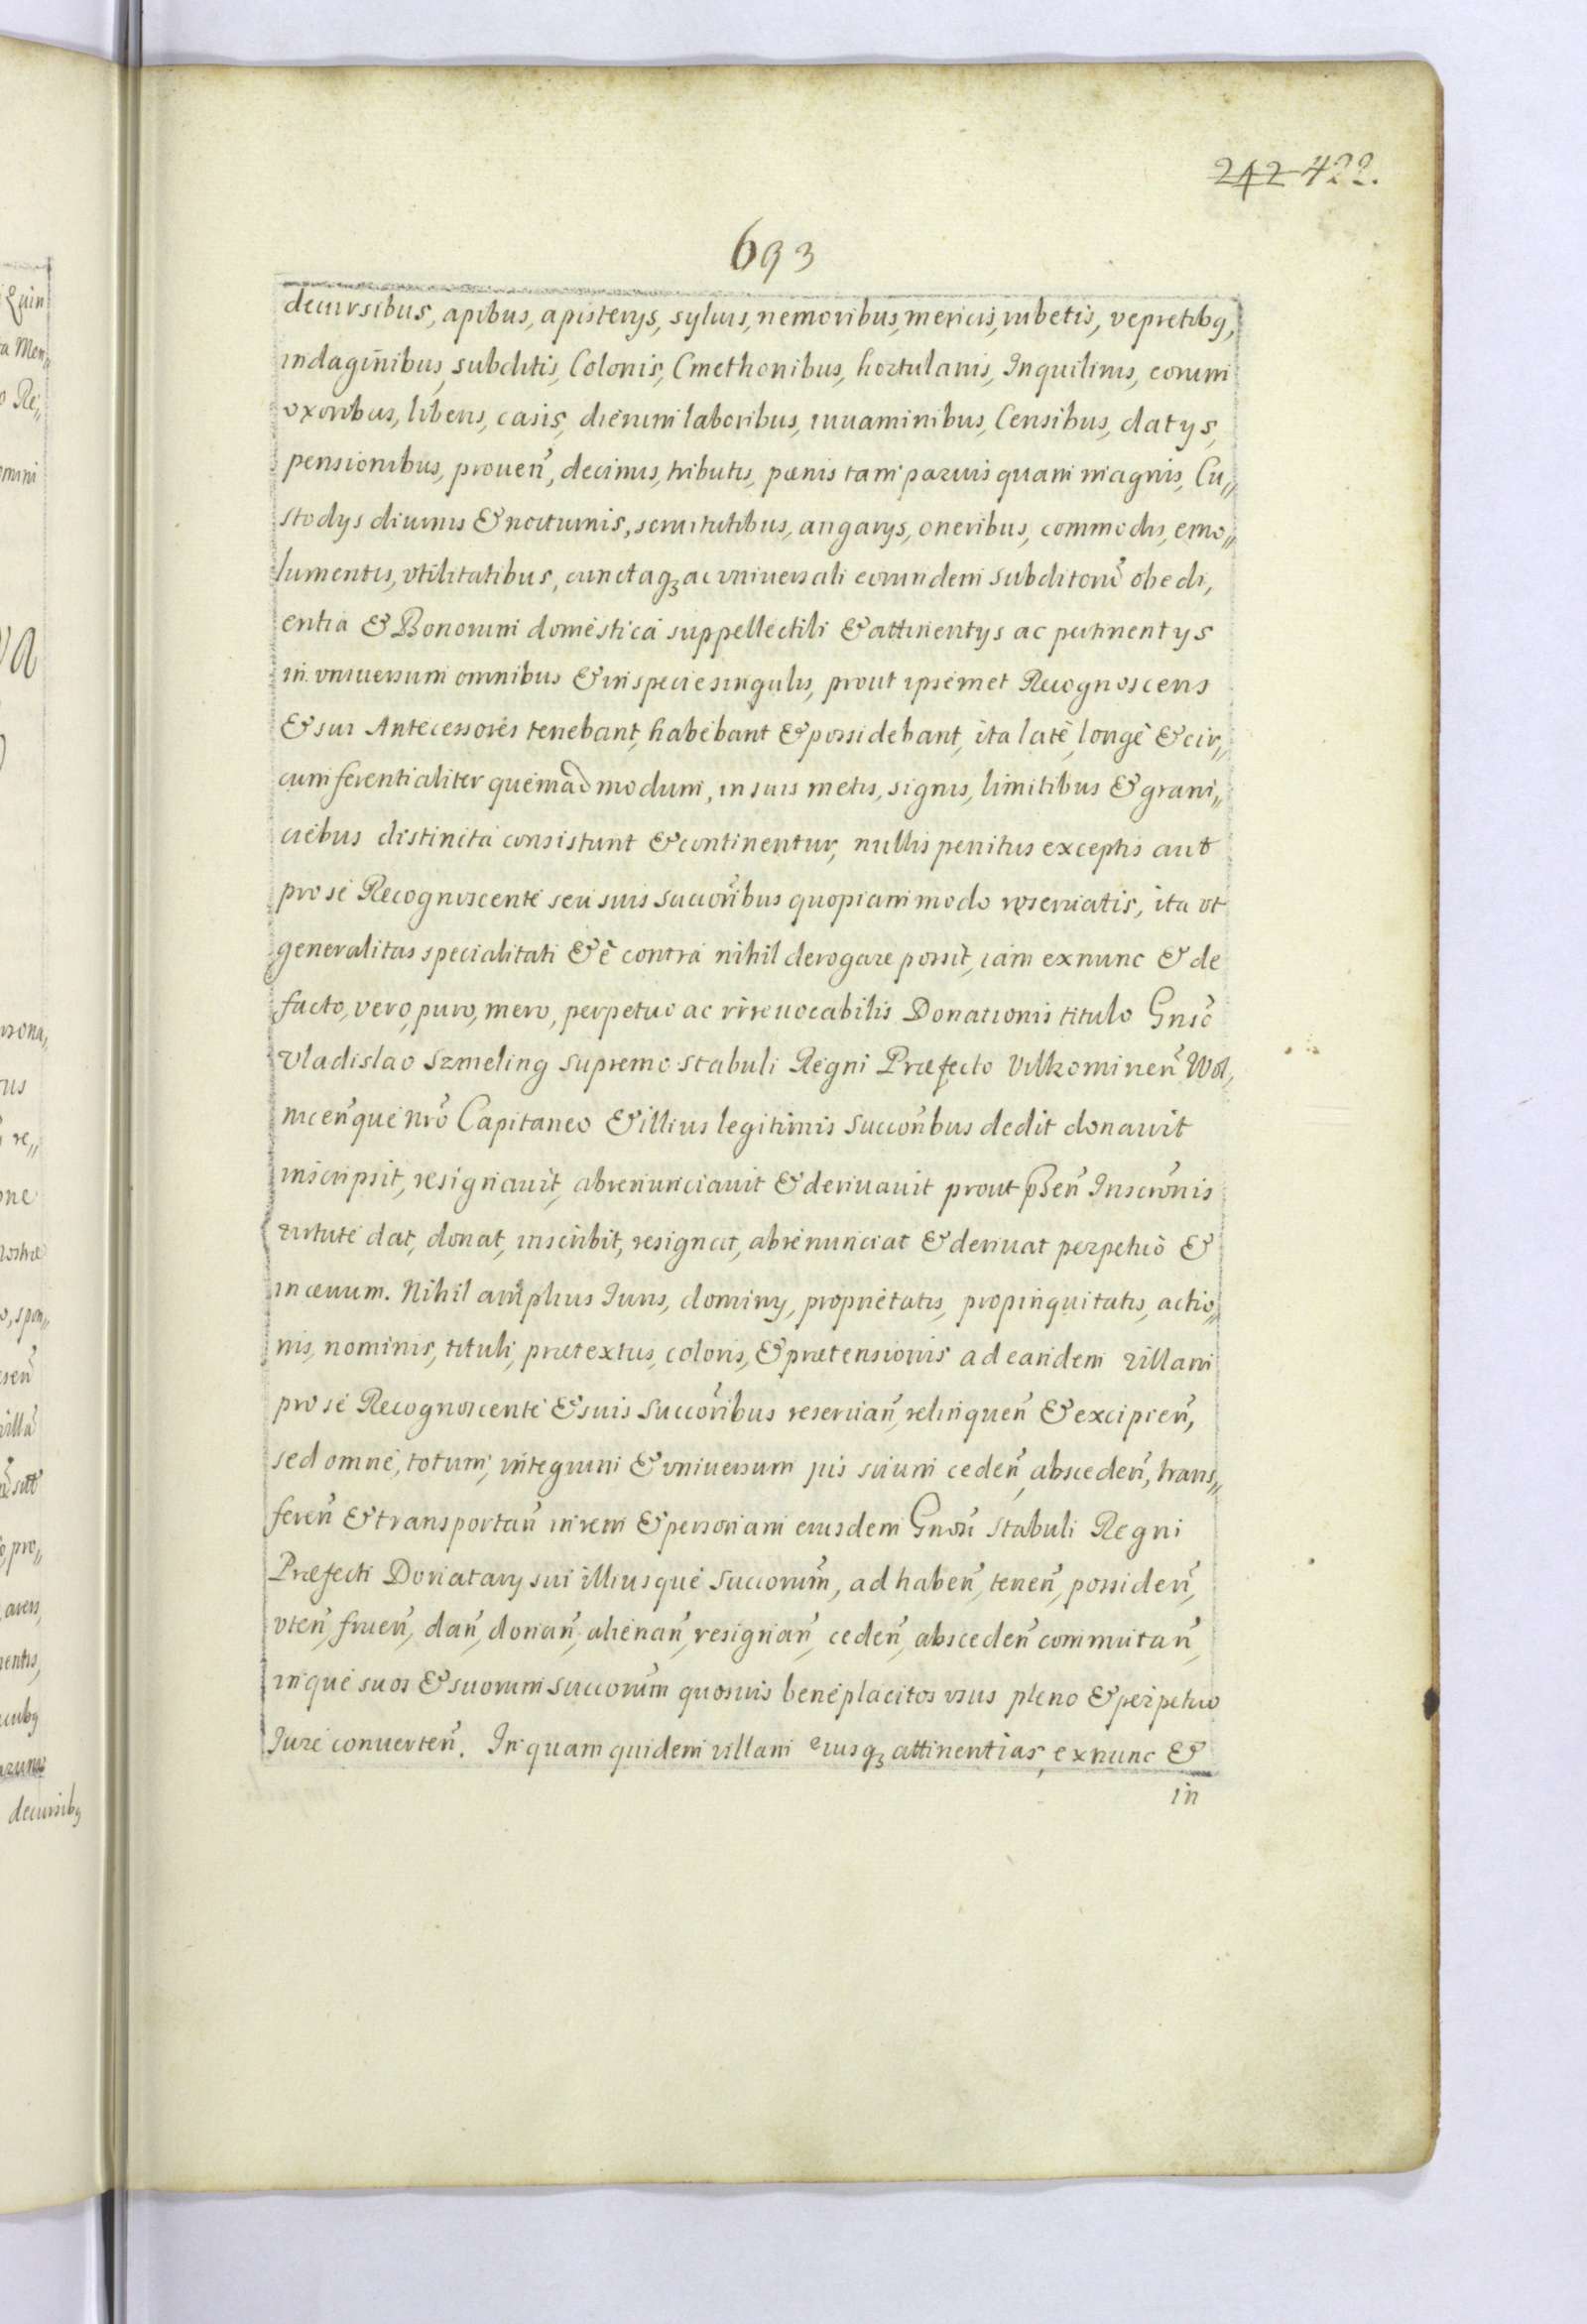 242 422.
693
decursibus, apibus, apisterys, syluis, nemoribus, mericis, rubetis, vepretibq,
indaginibus, subditis, Colonis, Cmethonibus, hortulanis, Inquilinis, eorum
vxoribus, liberis, casis, dierum laboribus, iuuaminibus, Censibus, datys,
pensionibus, prouen̄, decimis, tributis, pænis tam paruis quam magnis, Cu„
stodys diurnis & nocturnis, seruitutibus, angarys, oneribus, commodis, emo„
lumentis, vtilitatibus, cunctaqȝ ac vniuersali eorundem subditorū obedi,
entia & Bonorum domestica suppellectili & attinentys ac pertinentys
in vniuersum omnibus & in specie singulis, prout ipsemet Recognoscens
& sui Antecessores tenebant, habebant & possidebant, ita latè, longè & cir„
cumferentialiter quemadmodum, in suis metis, signis, limitibus & grani„
ciebus distincta consistunt & continentur, nullis penitus exceptis aut
pro se Recognoscente seu suis succōribus quopiam modo reseruatis, ita vt
generalitas specialitati & è contra nihil derogare possit, iam exnunc & de
facto, vero, puro, mero, perpetuo ac irreuocabilis Donationis titulo Gnsō
Vladislao Szmeling supremo stabuli Regni Præfecto Vilkominen̄ Wol,
nicen̄que nrō Capitaneo & illius legitimis succōribus dedit donauit
inscripsit, resignauit, abrenunciauit & deriuauit prout p̄sen̄ Inscrōnis
virtute dat, donat, inscribit, resignat, abrenunciat & deriuat perpetuò &
in æuum. Nihil amplius Iuris, dominy, proprietatis, propinquitatis, actio„
nis, nominis, tituli, prætextus, coloris, & prætensionis ad eandem villam
pro se Recognoscente & suis succōribus reseruan̄, relinquen̄ & excipien̄,
sed omne, totum, integrum & vniuersum jus suum ceden̄, absceden̄, trans„
feren̄ & transportan̄ in rem & personam eiusdem Gnōsi stabuli Regni
Præfecti Donatary sui illiusque succorum̄, ad haben̄, tenen̄, possiden̄,
vten̄, fruen̄, dan̄, donan̄, alienan̄, resignan̄, ceden̄, absceden̄ commutan̄,
inque suos & suorum succorum̄ quosuis beneplacitos vsus pleno & perpetuo
Iure conuerten̄. In quam quidem villam eiusqȝ attinentias, exnunc &
in